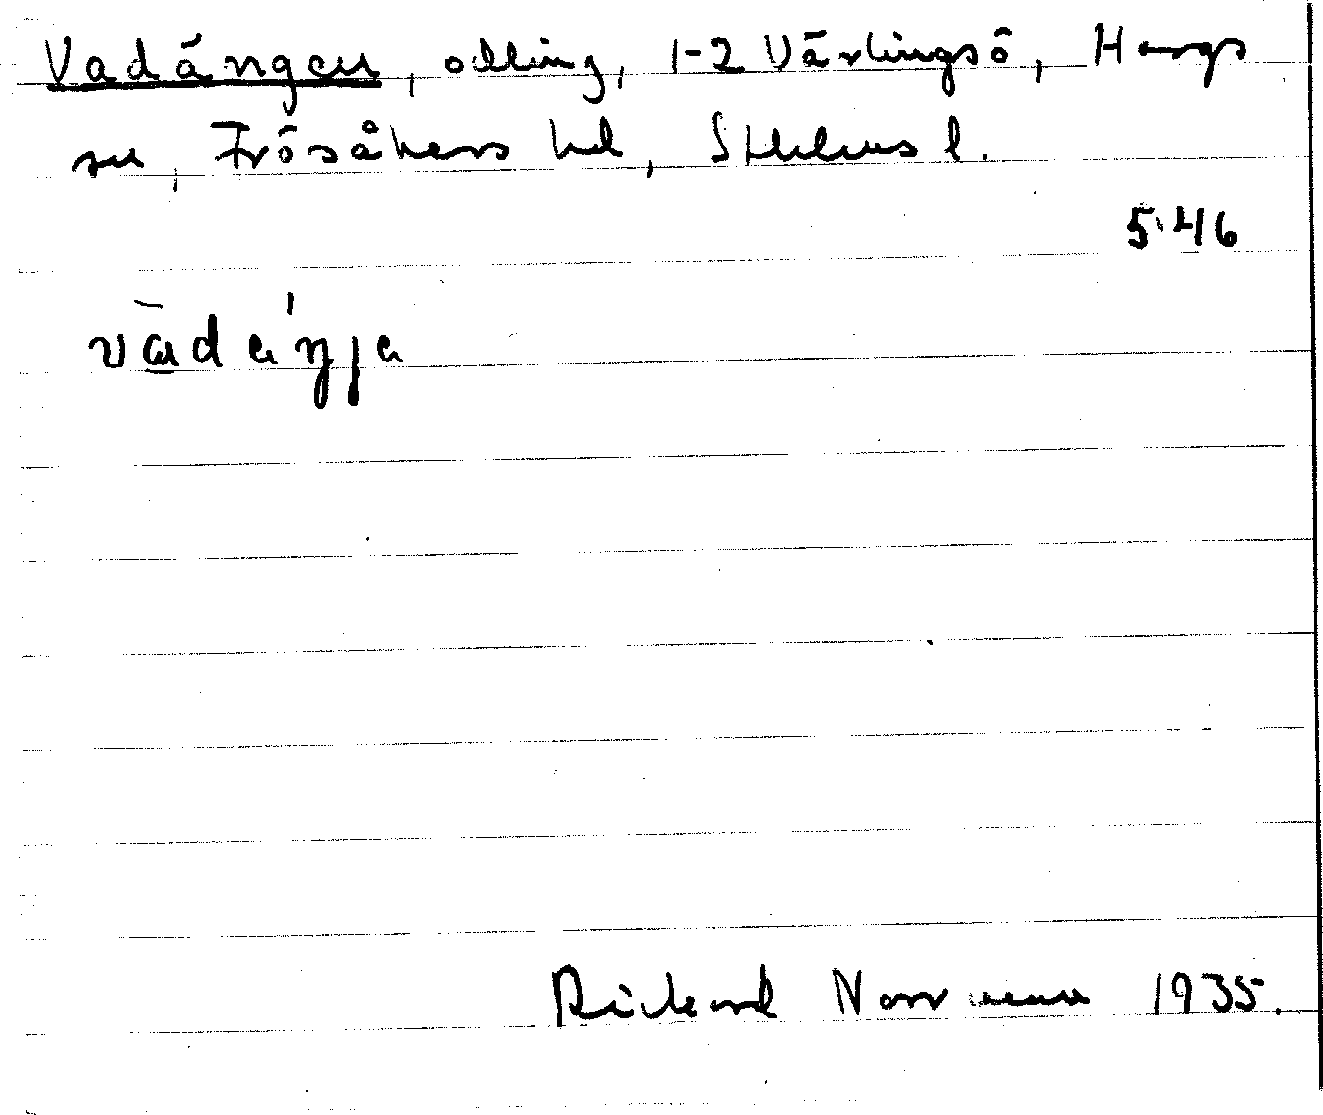 Vadängen, odling, 1-2 Värlingsö, Hargs
sn, Frösåkers hd, Sthlms l.
5:46
Rickard Norrman 1935.